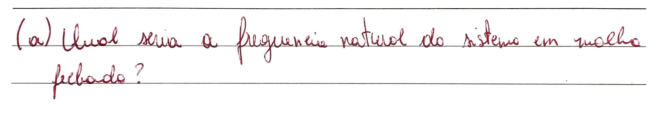 (a) Qual seria a frequencia natural do sistema em malha
fechado?